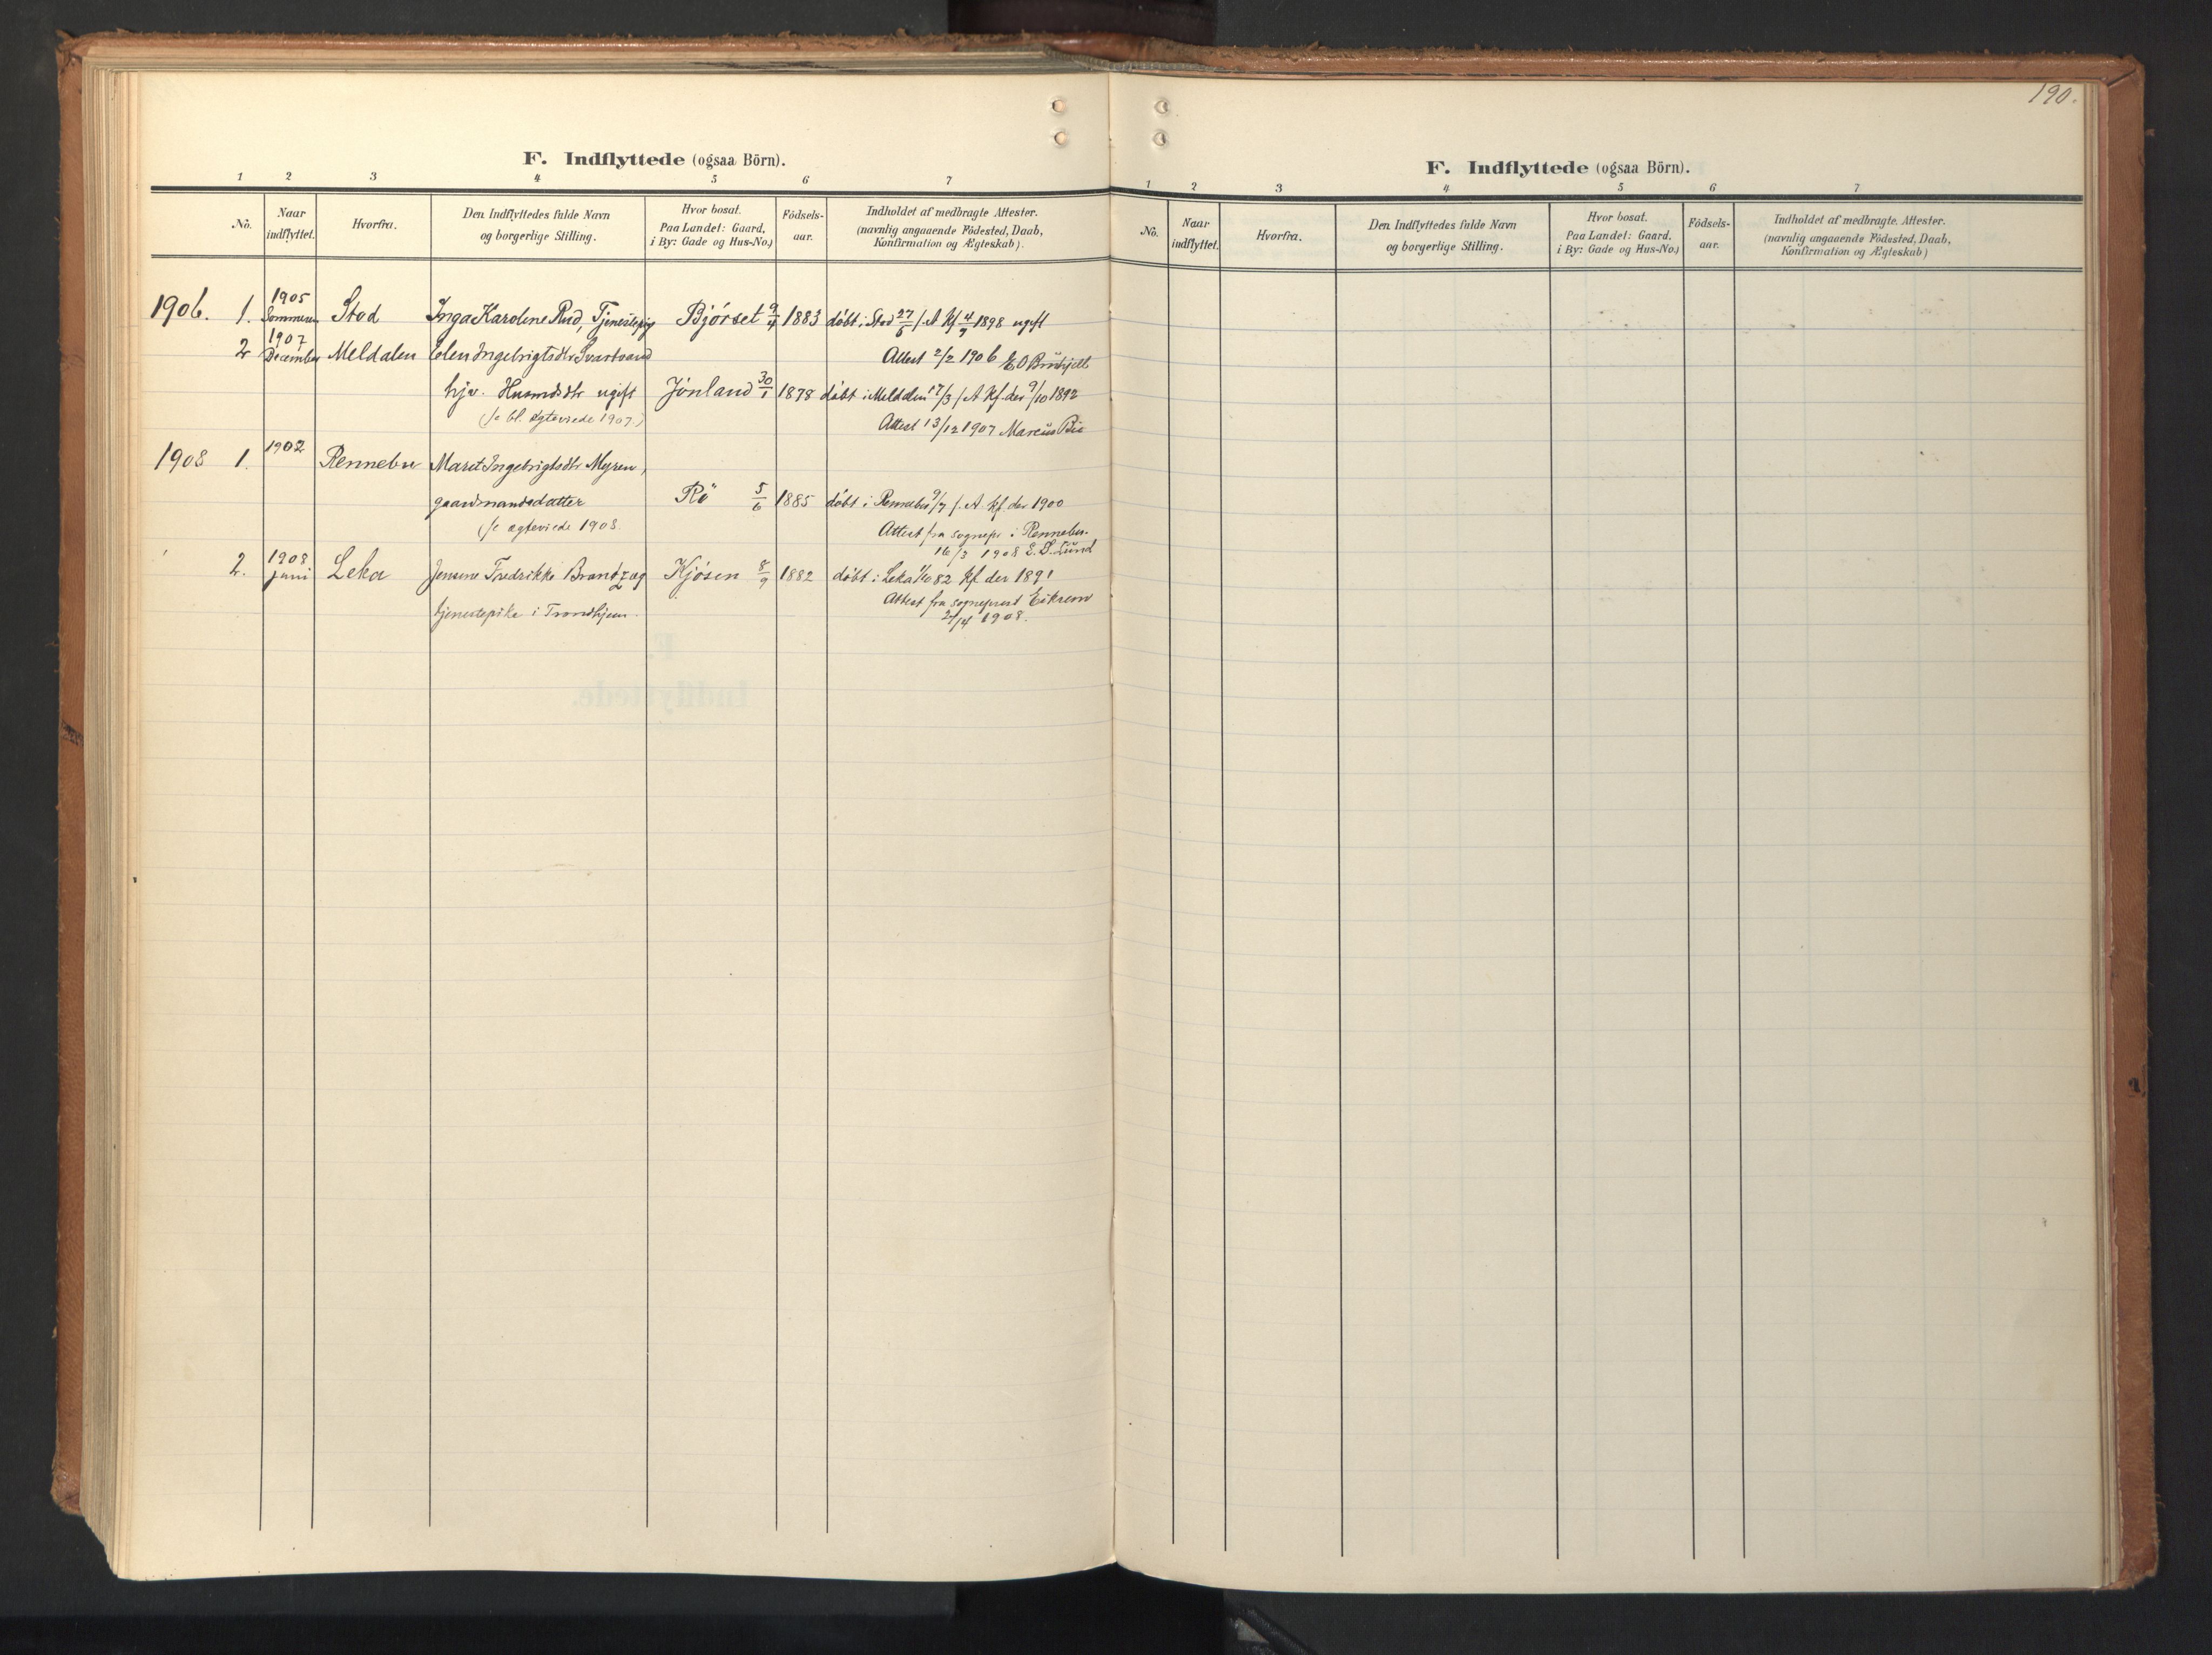 190.
F. Indflyttede (ogsaa Börn).
1 2 3 4 5 6 7
No. Naar indflyttet. Hvorfra. Den Indflyttedes fulde Navn og borgerlige Stilling. Hvor bosat. Paa Landet: Gaard, i By: Gade og Hus-No.) Födsels-aar. Indholdet af medbragte Attester. (navnlig angaaende Födested, Daab, Konfirmation og Ægteskab).
1906. 1. 1905 Sommeren Stod Inga Karoline Rud, Tjenestepig Bjørset 9/4 1883 døbt i Stod 27/5 s. A. Kf 4/9 1898 ugift
2 1907 December Meldalen Elen Ingebrigtsdtr Svartvand Attest 2/2 1906 E O
hjv. Husmdsdtr ugift Jønland 30/1 1878 døbt i Meldalen 17/3 s. A. Kf. der 9/10 1892
(se bl. ægteviede 1907.) Attest 13/12 1907 Marcus Bie
1908 1. 1902 Rennebu Marit Ingebrigtsdtr Myren,
gaardmandsdatter Rö 5/6 1885 døbt i Rennebu 9/7 s. A. Kf. der 1900
(se ægteviede 1908. Attest fra sognepr i Rennebu.
16/3 1908 E. S. Lund
2. 1908 juni Leka Jensine Fredrikke Brandzæg Kjøsen 8/9 1882 døbt i Leka 1/10 82 Kf. der 1891
tjenestepike i Trondhjem. Attest fra sogneprest Eikrem
27/4 1908.
F. Indflyttede (ogsaa Börn).
1 2 3 4 5 6 7
No. Naar indflyttet. Hvorfra. Den Indflyttedes fulde Navn og borgerlige Stilling. Hvor bosat. Paa Landet: Gaard, i By: Gade og Hus-No.) Födsels-aar. Indholdet af medbragte. Attester. (navnlig angaaende Födested, Daab, Konfirmation og Ægteskab)
F.
Indflyttede.